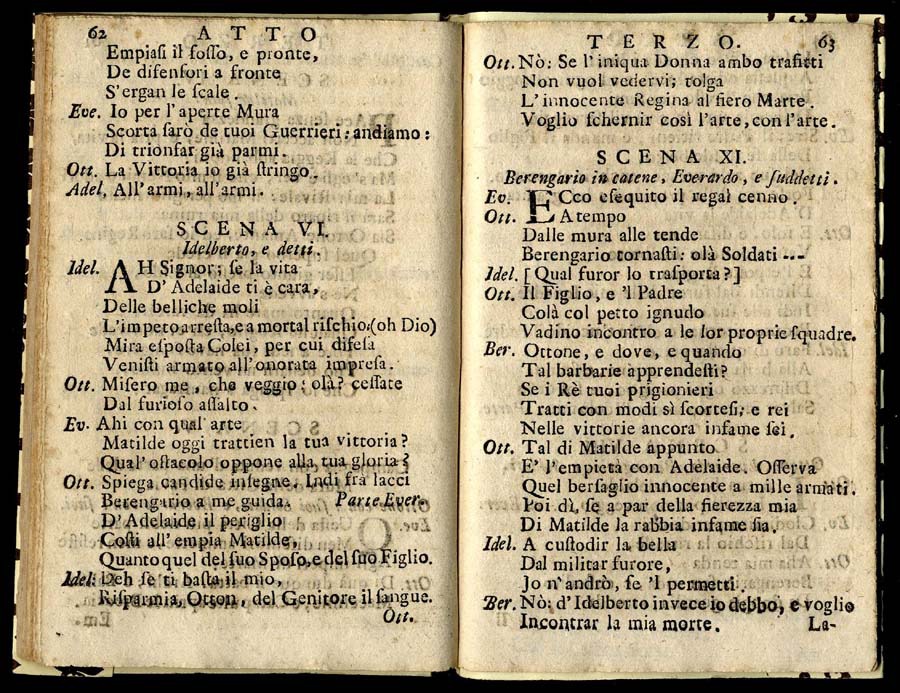 62 ATTO
Empiasi il fosso, e pronte,
De difensori a fronte
S'ergan le scale.
Eve. Io per l'aperte Mura
Scorta sarò de tuoi Guerrieri: andiamo:
Di trionfar già parmi.
Ott. La Vittoria io già stringo.
Adel. All'armi, all'armi.
SCENA VI.
Idelberto, e detti.
Idel. AH Signor; se la vita
D'Adelaide ti è cara,
Delle belliche moli
L'impeto arresta, e a mortal rischio (oh Dio)
Mira esposta Colei, per cui difesa
Venisti armato all'onorata impresa.
Ott. Misero me, che veggio; olà? cessate
Dal furioso assalto.
Ev. Ahi con qual'arte
Matilde oggi trattien la tua vittoria?
Qual'ostacolo oppone alla tua gloria?
Ott. Spiega candide insegne. Indi frà lacci
Berengario a me guida. Parte Ever.
D'Adelaide il periglio
Costi all'empia Matilde,
Quanto quel del suo Sposo, e del suo Figlio.
Idel: Deh se ti basta il mio,
Risparmia, Otton, del Genitore il sangue.
Ott.
TERZO. 63
Ott. Nò: Se l'iniqua Donna ambo trafitti
Non vuol vedervi; tolga
L'innocente Regina al fiero Marte.
Voglio schernir così l'arte, con l'arte.
SCENA XI.
Berengario in catene, Everardo, e suddetti.
Ev. ECco esequito il regal cenno.
Ott. A tempo
Dalle mura alle tende
Berengario tornasti: olà Soldati ---
Idel. [Qual furor lo trasporta?]
Ott. Il Figlio, e 'l Padre
Colà col petto ignudo
Vadino incontro a le lor proprie squadre.
Ber. Ottone, e dove, e quando
Tal barbarie apprendesti?
Se i Rè tuoi prigionieri
Tratti con modi sì scortesi; e rei
Nelle vittorie ancora infame sei.
Ott. Tal di Matilde appunto
E' l'empietà con Adelaide. Osserva
Quel bersaglio innocente a mille armati.
Poi dì, se a par della fierezza mia
Di Matilde la rabbia infame sia.
Idel. A custodir la bella
Dal militar furore,
Jo n'andrò, se 'l permetti.
Ber. Nò: d'Idelberto invece io debbo, e voglio
Incontrar la mia morte. La-